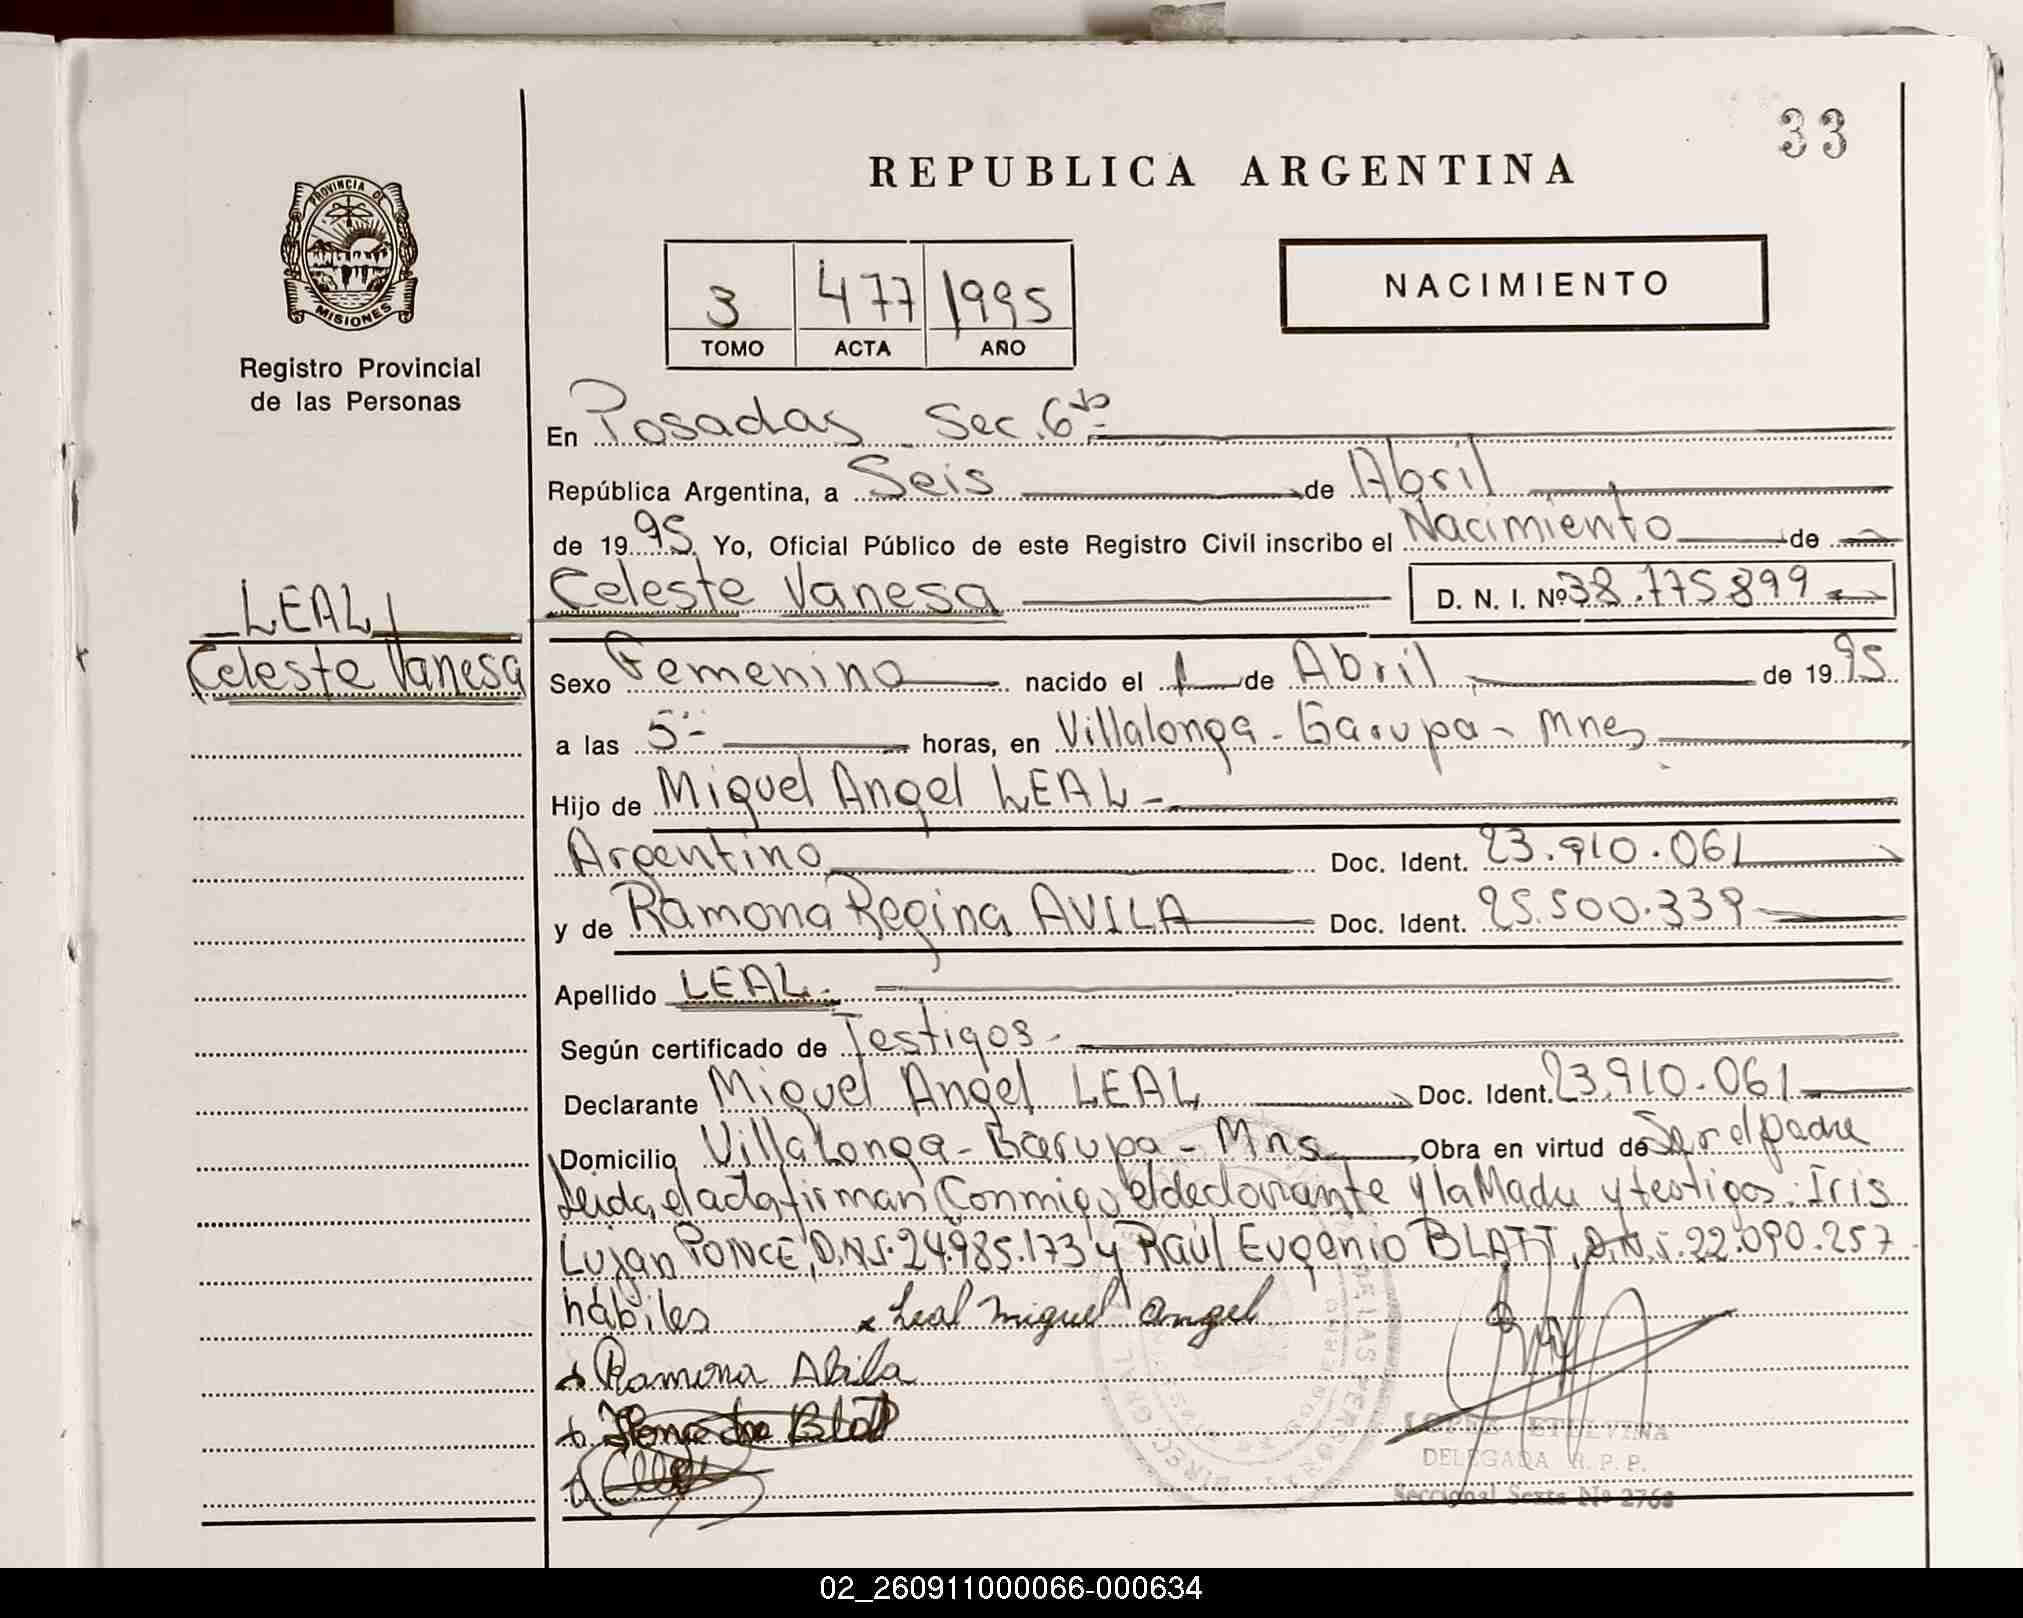 33
REPUBLICA ARGENTINA
PROVINCIA DE
MISIONES
Registro Provincial
de las Personas
3 477 1995
TOMO ACTA AÑO
NACIMIENTO
En Posadas - Sec. 6ta
República Argentina, a Seis de Abril
de 1995 Yo, Oficial Público de este Registro Civil inscribo el Nacimiento de
Celeste Vanesa D. N. I. Nº 38.775.899
LEAL
Celeste Vanesa
Sexo Femenino nacido el 1 de Abril de 1995
a las 5 horas, en Villalonga - Garupa - Mnes
Hijo de Miguel Angel LEAL -
Argentino Doc. Ident. 23.910.061
y de Ramona Regina AVILA Doc. Ident. 25.500.339
Apellido LEAL.
Según certificado de Testigos -
Declarante Miguel Angel LEAL Doc. Ident. 23.910.061
Domicilio Villalonga - Garupa - Mns Obra en virtud de Ser el padre
Leida el acta firman Conmigo el declarante y la Madre y testigos: Iris
Lujan PONCE, D.N.I. 24.985.173 y Raúl Eugenio BLATT, D.N.I. 22.090.257
hábiles x Leal Miguel Angel
x Ramona Abila
LOPEZ ETELVINA
DELEGADA R. P. P.
Seccional Sexta Nº 2768
02_260911000066-000634